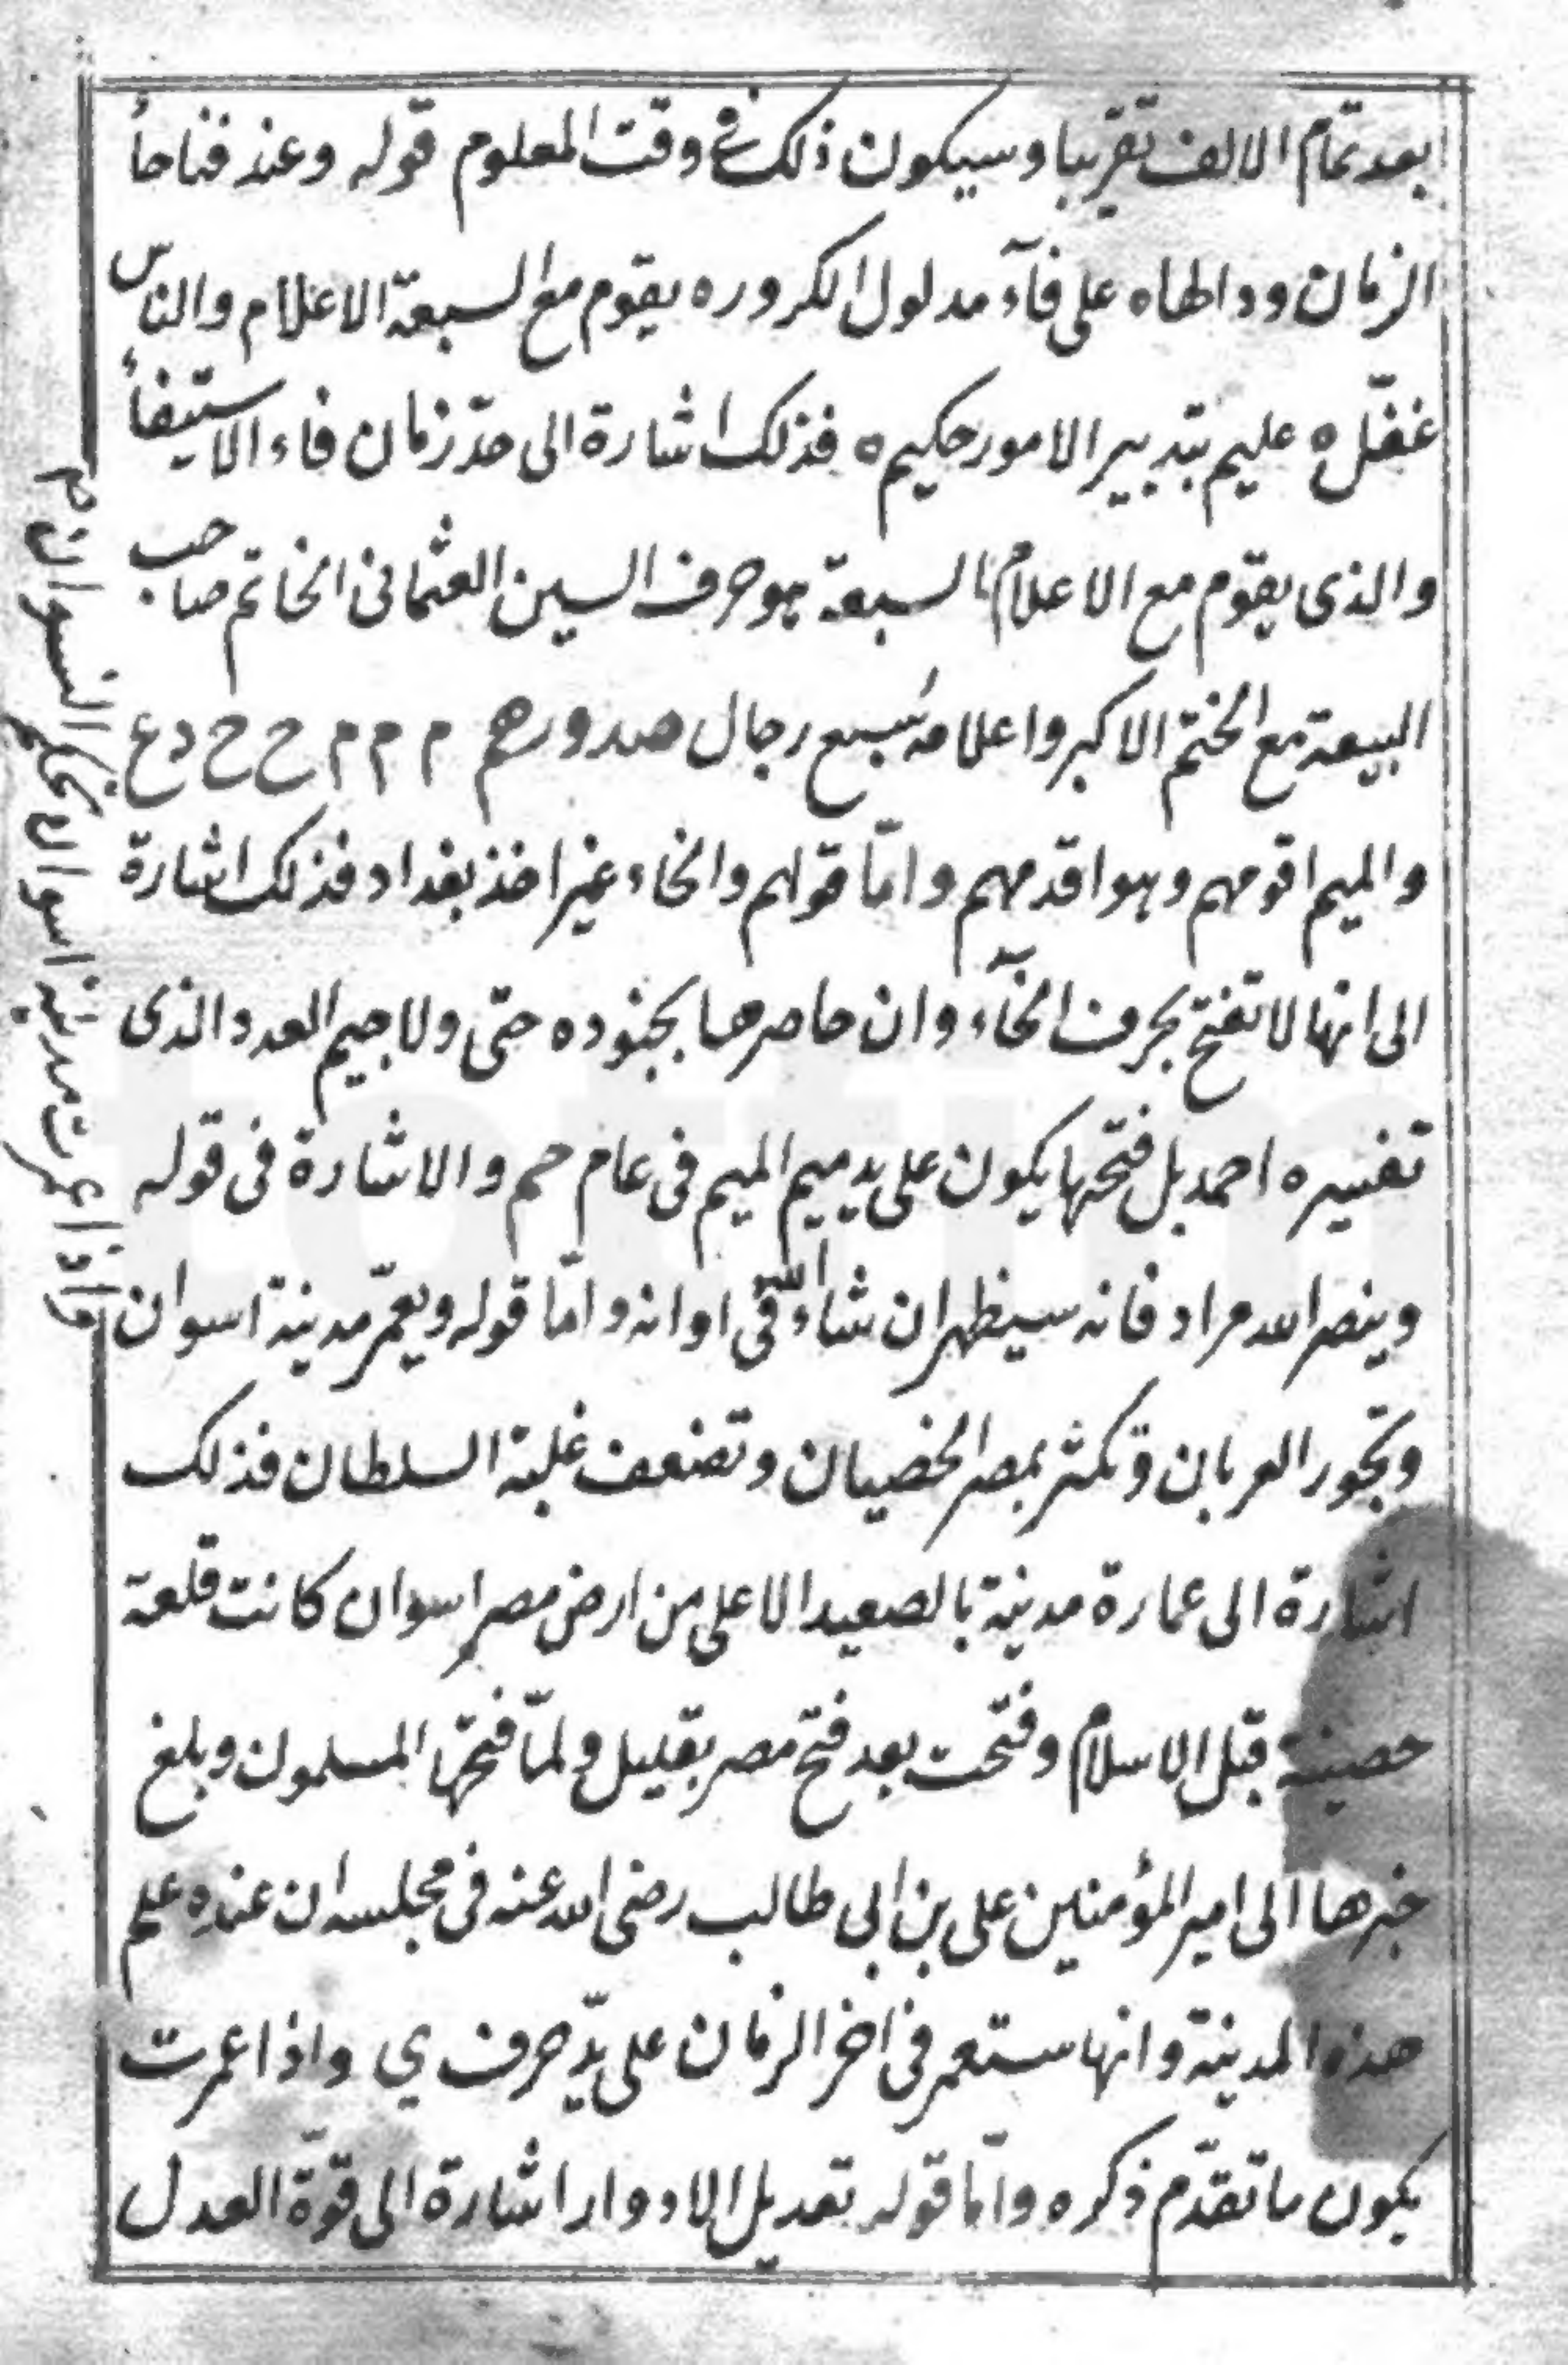 بعد تمام الالف تقريبا وسيكون ذلك في وقت المعلوم قوله وعند فناحأ
الزمان وداطهاه على فآء مدلول الكروره يقوم مع السبعة الاعلام والناس
غفّل ه عليم بتدبير الامور حكيم ه فذلك اشارة الى حدّ زمان فاء الاستيفأ
والذى يقوم مع الاعلام السبعة هو حرف السين العثمانى الخاتم صاحب
البيعة مع الختم الاكبر واعلامه سبع رجال صدورهم م م م ح ح د ع
والميم اقومهم وهو اقدمهم وامّا قولهم والخاء غير اخذ بغداد فذلك اشارة
الى انها لا تفتح بحرف الخآء وان حاصرها بجنوده حتى ولا جيم العدد الذى
تفسيره احمد بل فتحها يكون على يد ميم الميم فى عام حم والاشارة فى قوله
وينصر الله مراد فانه سيظهر ان شاء الله فى اوانه وامّا قوله ويعمّر مدينة اسوان
وتجور العربان وتكثر بمصر الخصيان وتضعف غلبة السلطان فذلك
اشارة الى عمارة مدينة بالصعيد الاعلى من ارض مصر اسوان كانت قلعة
حصينة قبل الاسلام وفتحت بعد فتح مصر بقليل ولمّا فتحها المسلمون وبلغ
خبرها الى امير المؤمنين على بن ابى طالب رضى الله عنه فى مجلسه ان عنده علم
هذه المدينة وانها ستعمر فى اخر الزمان على يدّ حرف ي واذا عمرت
يكون ما تقدّم ذكره وامّا قوله تعديل الادوار اشارة الى قوّة العدل
واذا عمرت مدينة اسوان تحكم النسوان م